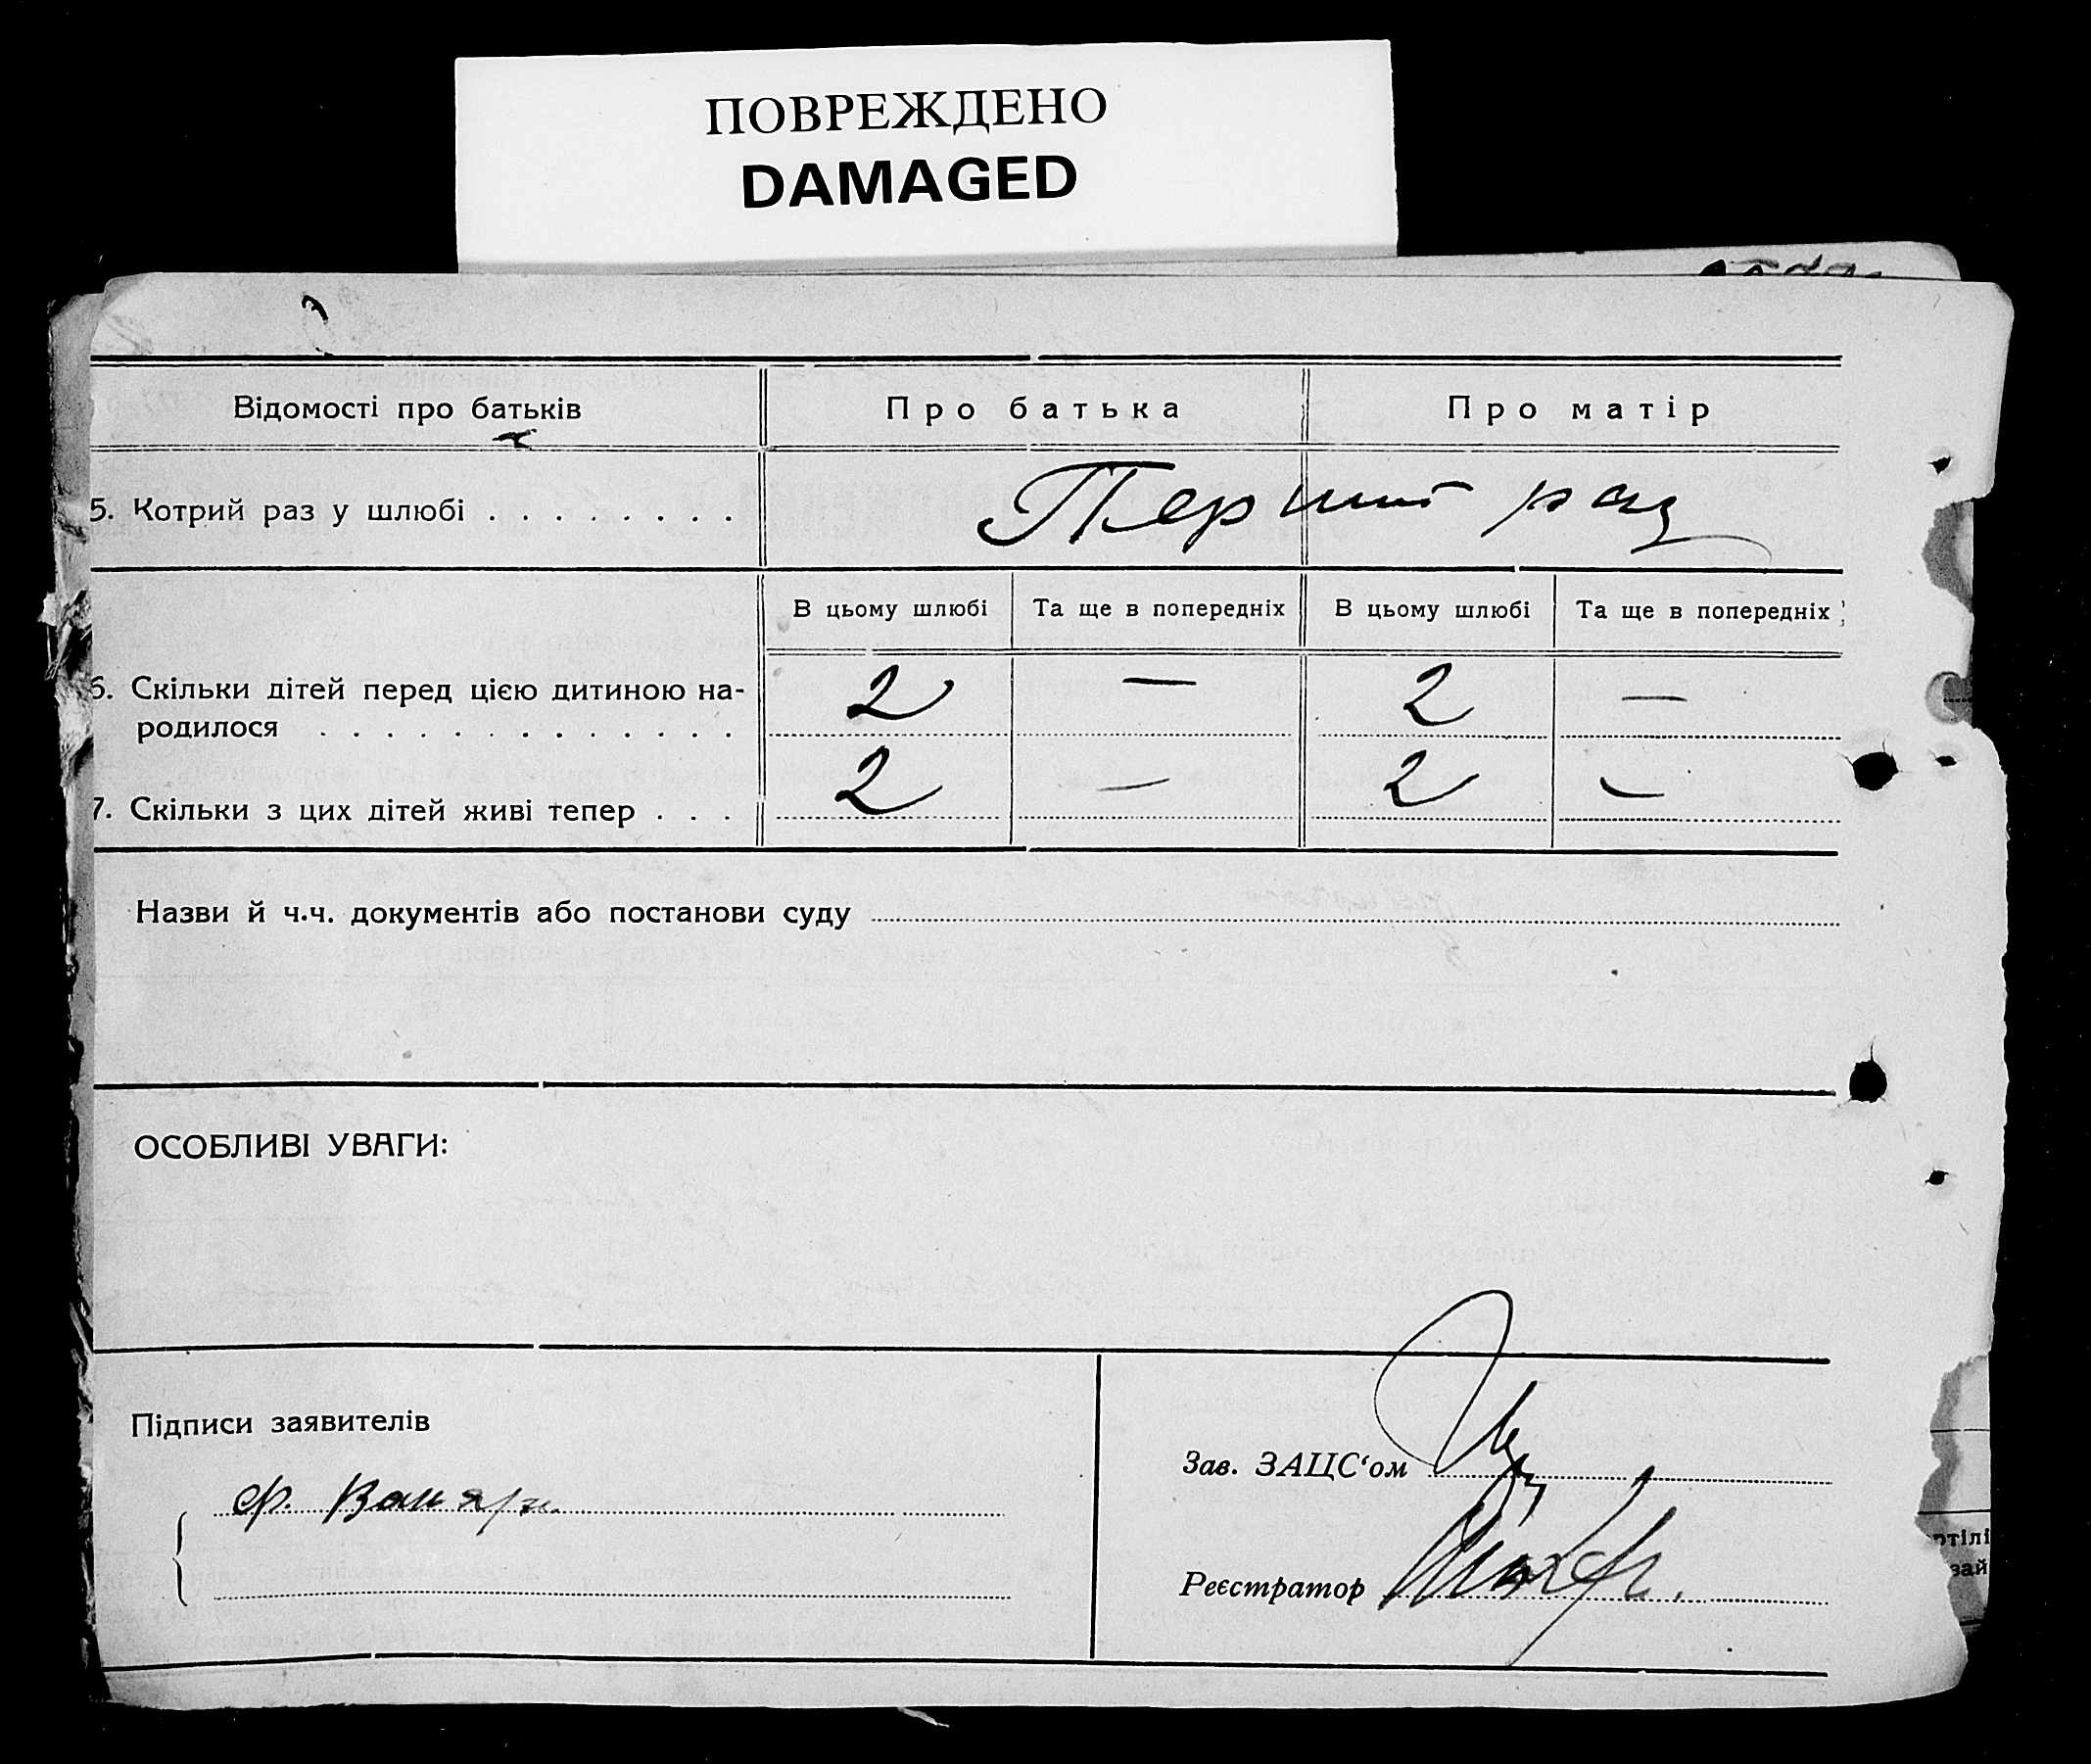 ПОВРЕЖДЕНО
DAMAGED
Відомості про батьків
Про батька
Про матір
5. Котрий раз у шлюбі
Перший раз
В цьому шлюбі
Та ще в попередніх
В цьому шлюбі
Та ще в попередніх
6. Скільки дітей перед цією дитиною на-
родилося
2 — 2 —
7. Скільки з цих дітей живі тепер
2 — 2 —
Назви й ч.ч. документів або постанови суду
ОСОБЛИВІ УВАГИ:
Підписи заявителів
Ф.
Зав. ЗАЦС‘ом
Реєстратор